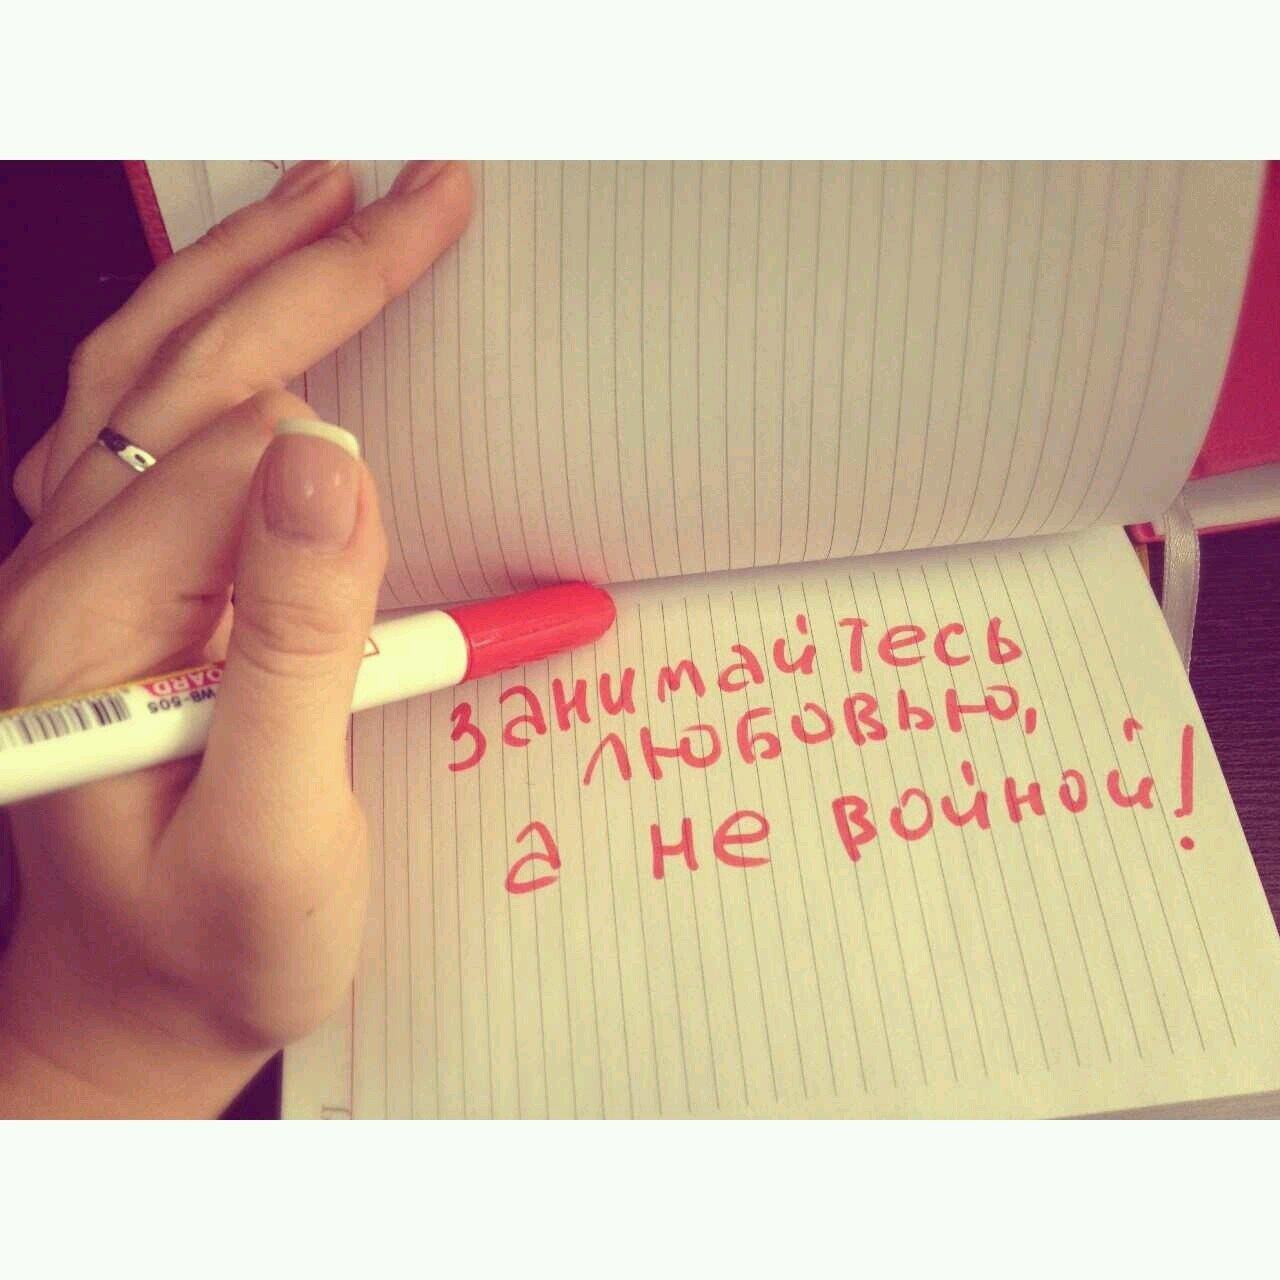 занимайтесь
любовью,
а не войной!
BOARD
WB-505